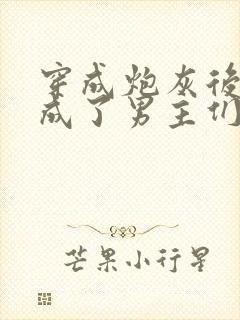 穿成炮灰後
成了男主们
芒果小行星